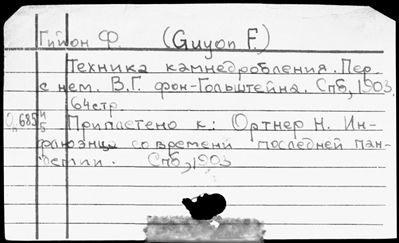 Гийон Ф. (Guyon F.)
Техника камнедробления. Пер.
с нем. В.Г. фон-Гольштейна. Спб, 1903
64стр.
685 Приплетено к: Ортнер Н. Ин-
флюэнца со времени последней пан-
демии. Спб, 1903